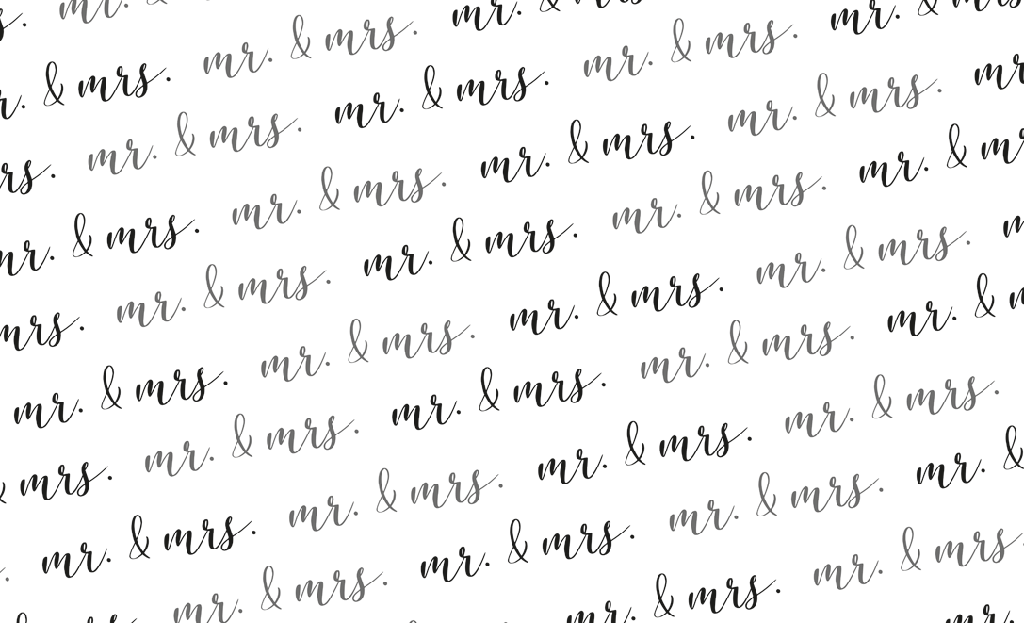 s. mr. &
r. & mrs. mr. & mrs. mr. & mrs.
rs. mr. & mrs. mr. & mrs. mr. & mrs. mr. & mrs.
mr. & mrs. mr. & mrs. mr. & mrs. mr. & mrs. mr
mrs. mr. & mrs. mr. & mrs. mr. & mrs. mr. & m
mr. & mrs. mr. & mrs. mr. & mrs. mr. & mrs. m
& mrs. mr. & mrs. mr. & mrs. mr. & mrs. mr. & m
mr. & mrs. mr. & mrs. mr. & mrs. mr. & mrs.
mr. & mrs. mr. & mrs. mr. & mrs. mr. &
mr. & mrs. mr. & mrs.
mr.